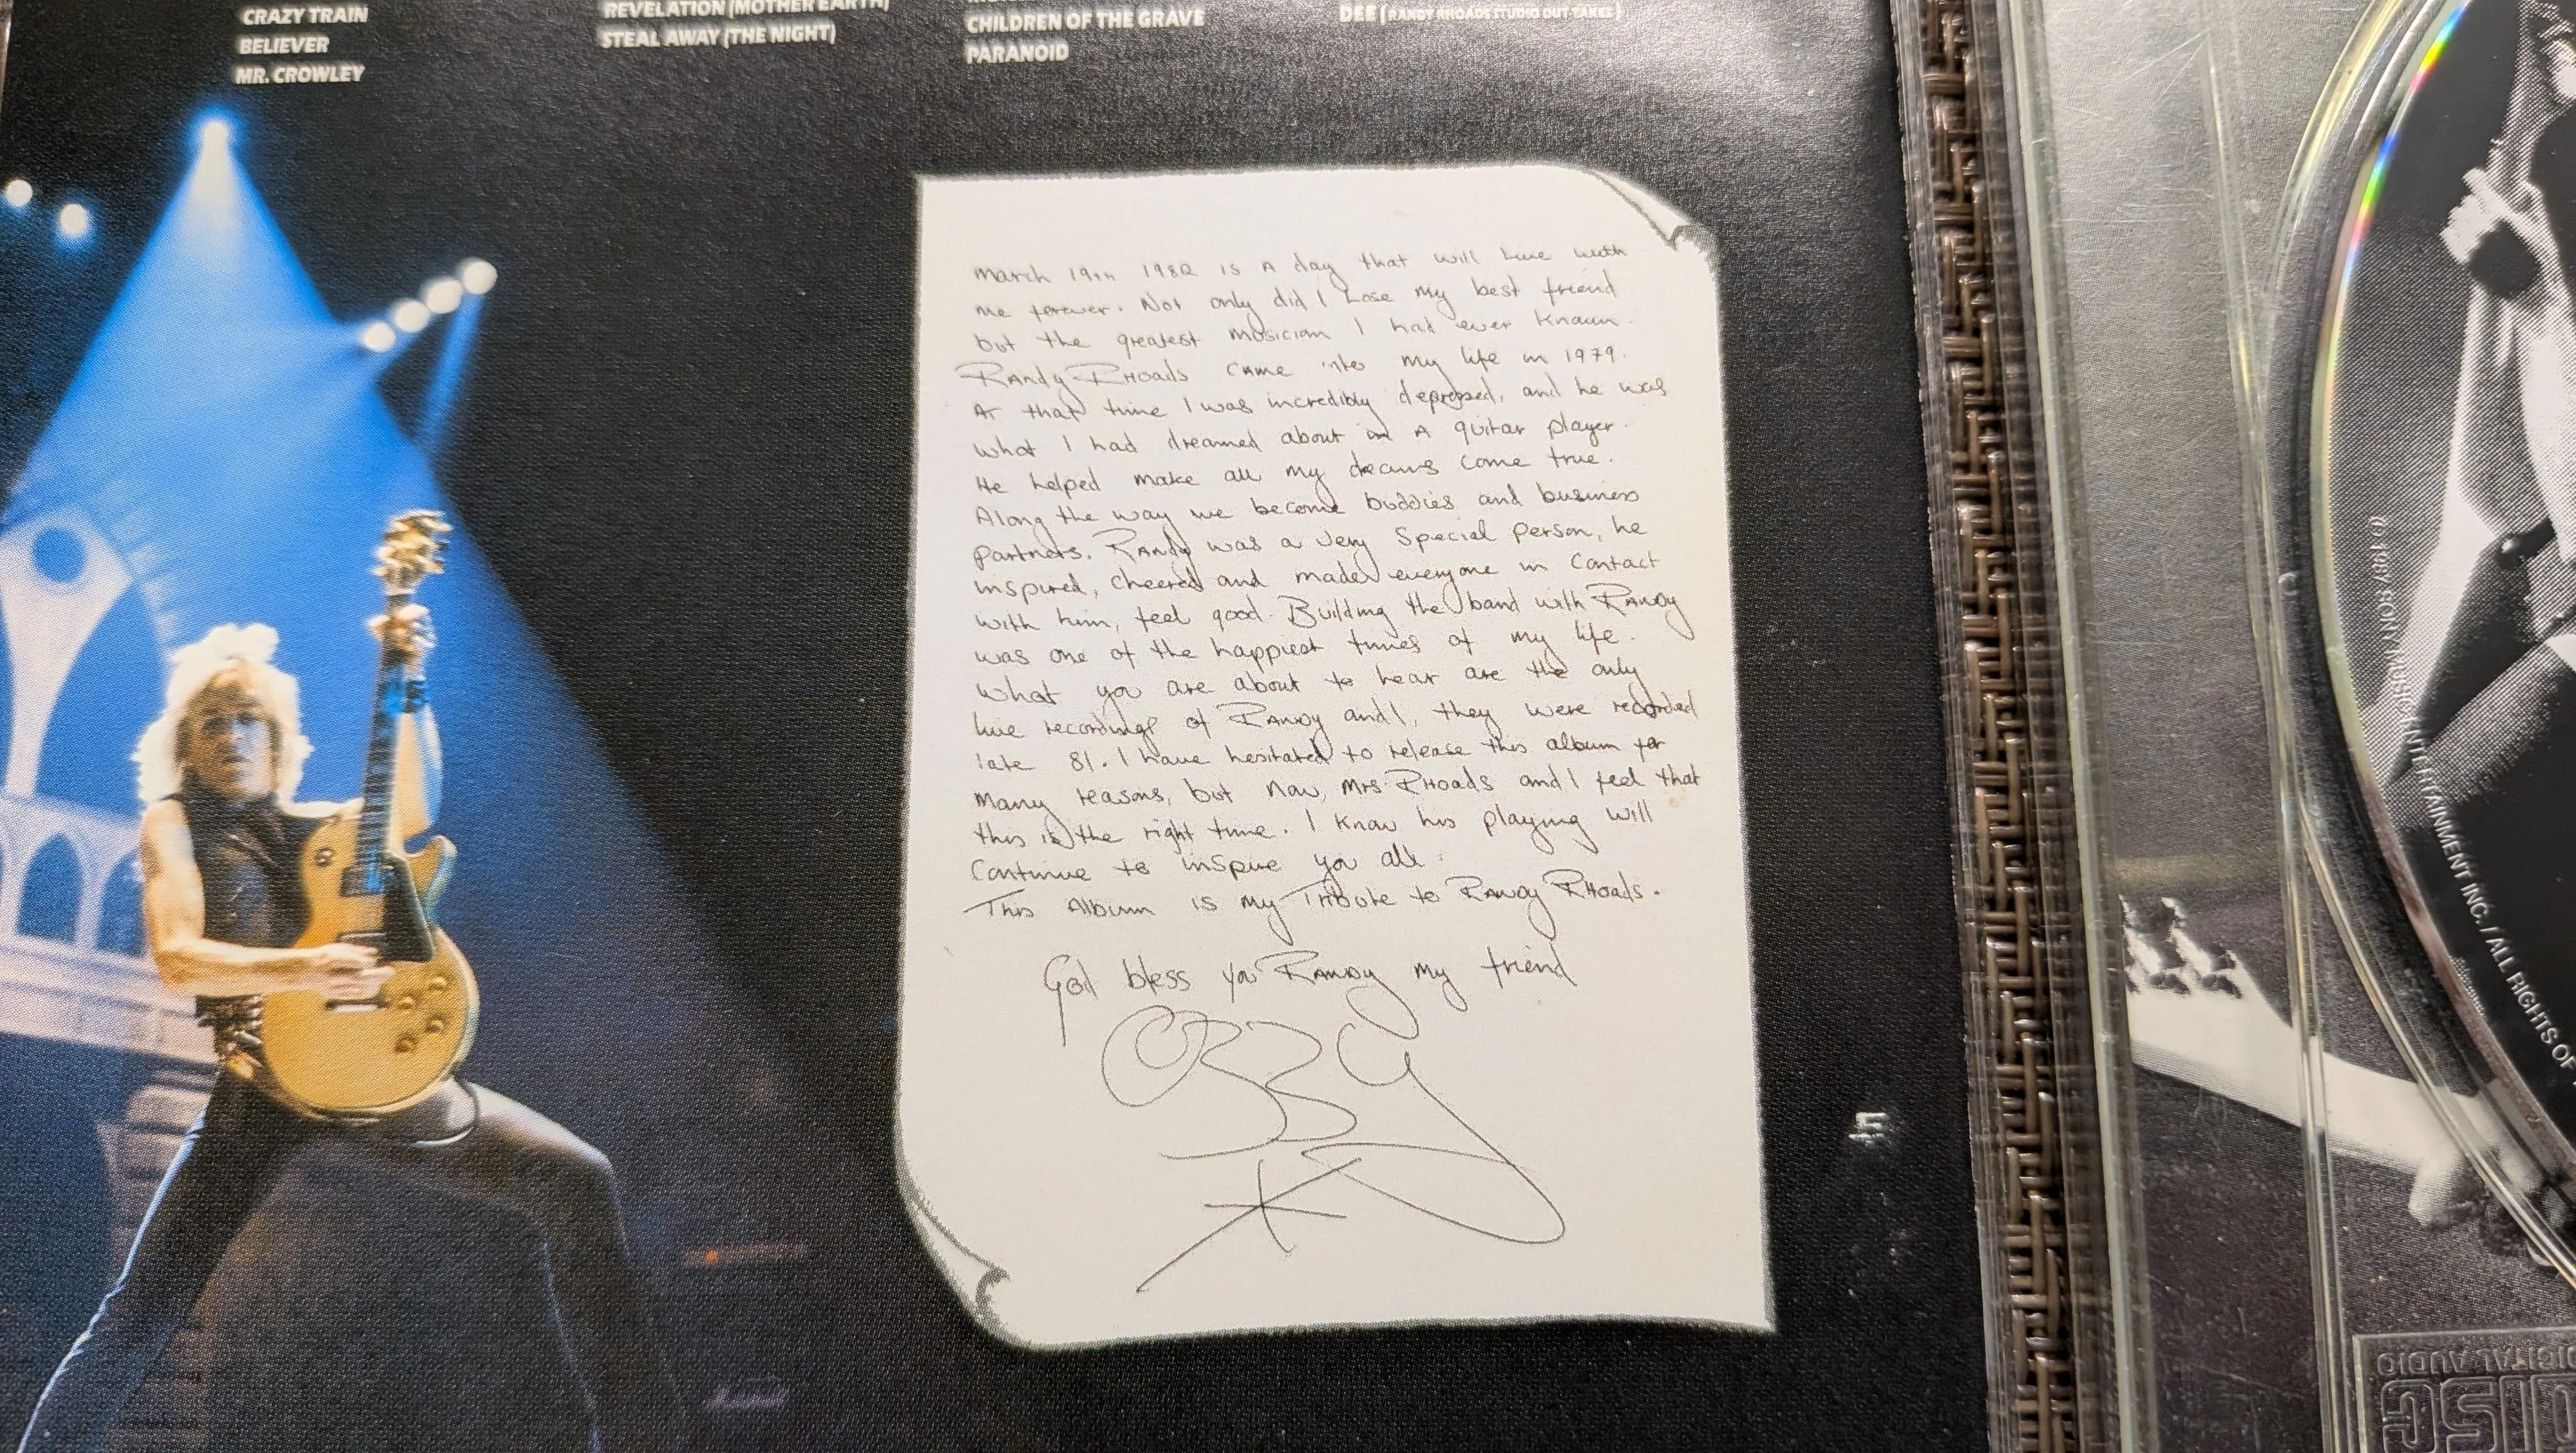 CRAZY TRAIN
BELIEVER
MR. CROWLEY
REVELATION (MOTHER EARTH)
STEAL AWAY (THE NIGHT)
CHILDREN OF THE GRAVE
PARANOID
DEE (RANDY RHOADS STUDIO OUT-TAKES)
March 19th 1982 is A day that will Live with
me forever. Not only did I Lose My best friend
but the greatest Musician I had ever Known.
RAndy RHOads CAME into My life in 1979.
At that time I was incredibly depressed, and he was
what I had dreamed about in A guitar player.
He helped make all my dreams Come true.
Along the way we become buddies and business
partners. RAndy was a very Special person, he
inspired, cheered and made everyone in Contact
with him, feel good. Building the band with RANDY
was one of the happiest times of my life.
What you are about to hear are the only
live recordings of RANDY and I, they were recorded
late 81. I have hesitated to release this album for
Many reasons, but now, Mrs RHOads and I feel that
this is the right time. I Know his playing will
Continue to inSpire you all.
This Album is my Tribute to RANDY RHOads.
God bless you RANDY my friend
OZZY
5
℗ 1987 SONY MUSIC ENTERTAINMENT INC. / ALL RIGHTS OF
DISC
DIGITAL AUDIO